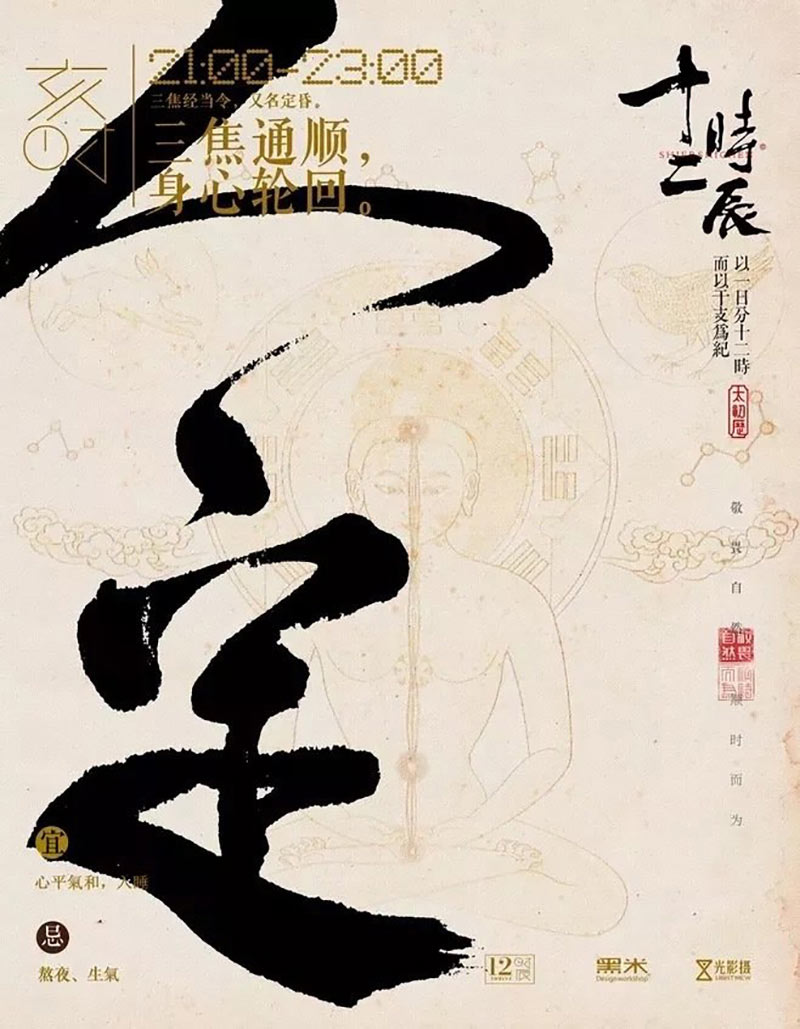 亥时
21:00-23:00
三焦经当令，又名定昏。
三焦通顺，
身心轮回。
十二時辰
以一日分十二時
而以干支爲紀
太初歷
人定
敬畏自然
顺时而为
宜
心平氣和，入睡
忌
熬夜、生氣
12時辰
黑米
Designworkshop
光影摄